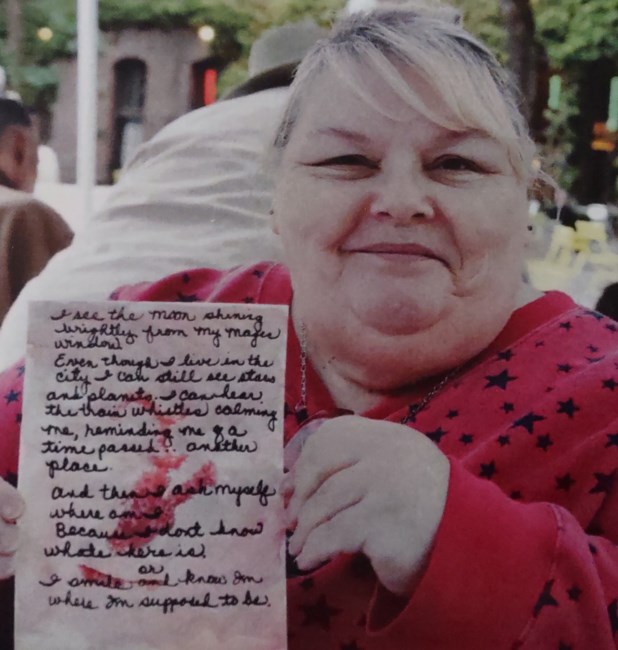 I see the moon shining
brightly from my magic
window.
Even though I live in the
city I can still see stars
and planets. I can hear
the train whistles calming
me, reminding me of a
time passed... another
place.
And then I ask myself
where am I
Because I dont know
whats here is.
or
I smile and know Im
where Im supposed to be.